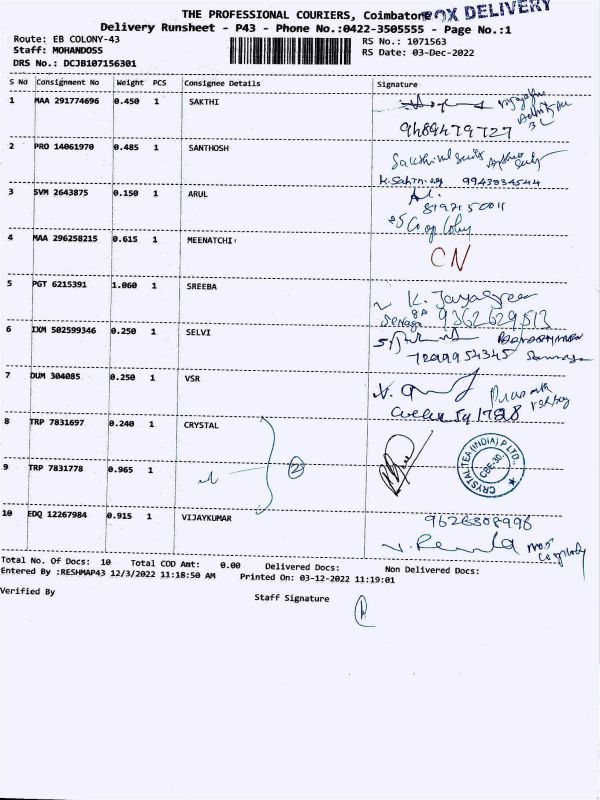 THE PROFESSIONAL COURIERS, Coimbatore
BOX DELIVERY
Delivery Runsheet - P43 - Phone No.:0422-3505555 - Page No.:1
Route: EB COLONY-43
RS No.: 1071563
Staff: MOHANDOSS
RS Date: 03-Dec-2022
DRS No.: DCJB107156301
S No Consignment No Weight PCS Consignee Details Signature
1 MAA 291774696 0.450 1 SAKTHI
9489479727
2 PRO 14061970 0.485 1 SANTHOSH
9943934544
3 SVM 2643875 0.150 1 ARUL
4 MAA 296258215 0.615 1 MEENATCHI
CN
5 PGT 6215391 1.060 1 SREEBA
K. Jayasree
9362629513
6 IXM 502599346 0.250 1 SELVI
7299954345
7 DUM 304085 0.250 1 VSR
8 TRP 7831697 0.240 1 CRYSTAL
CRYSTAL TEA (INDIA) P LTD.
CBE-30.
9 TRP 7831778 0.965 1
2
10 EDQ 12267984 0.915 1 VIJAYKUMAR
9626308996
Total No. Of Docs: 10 Total COD Amt: 0.00 Delivered Docs: Non Delivered Docs:
Entered By :RESHMAP43 12/3/2022 11:18:50 AM Printed On: 03-12-2022 11:19:01
Verified By
Staff Signature